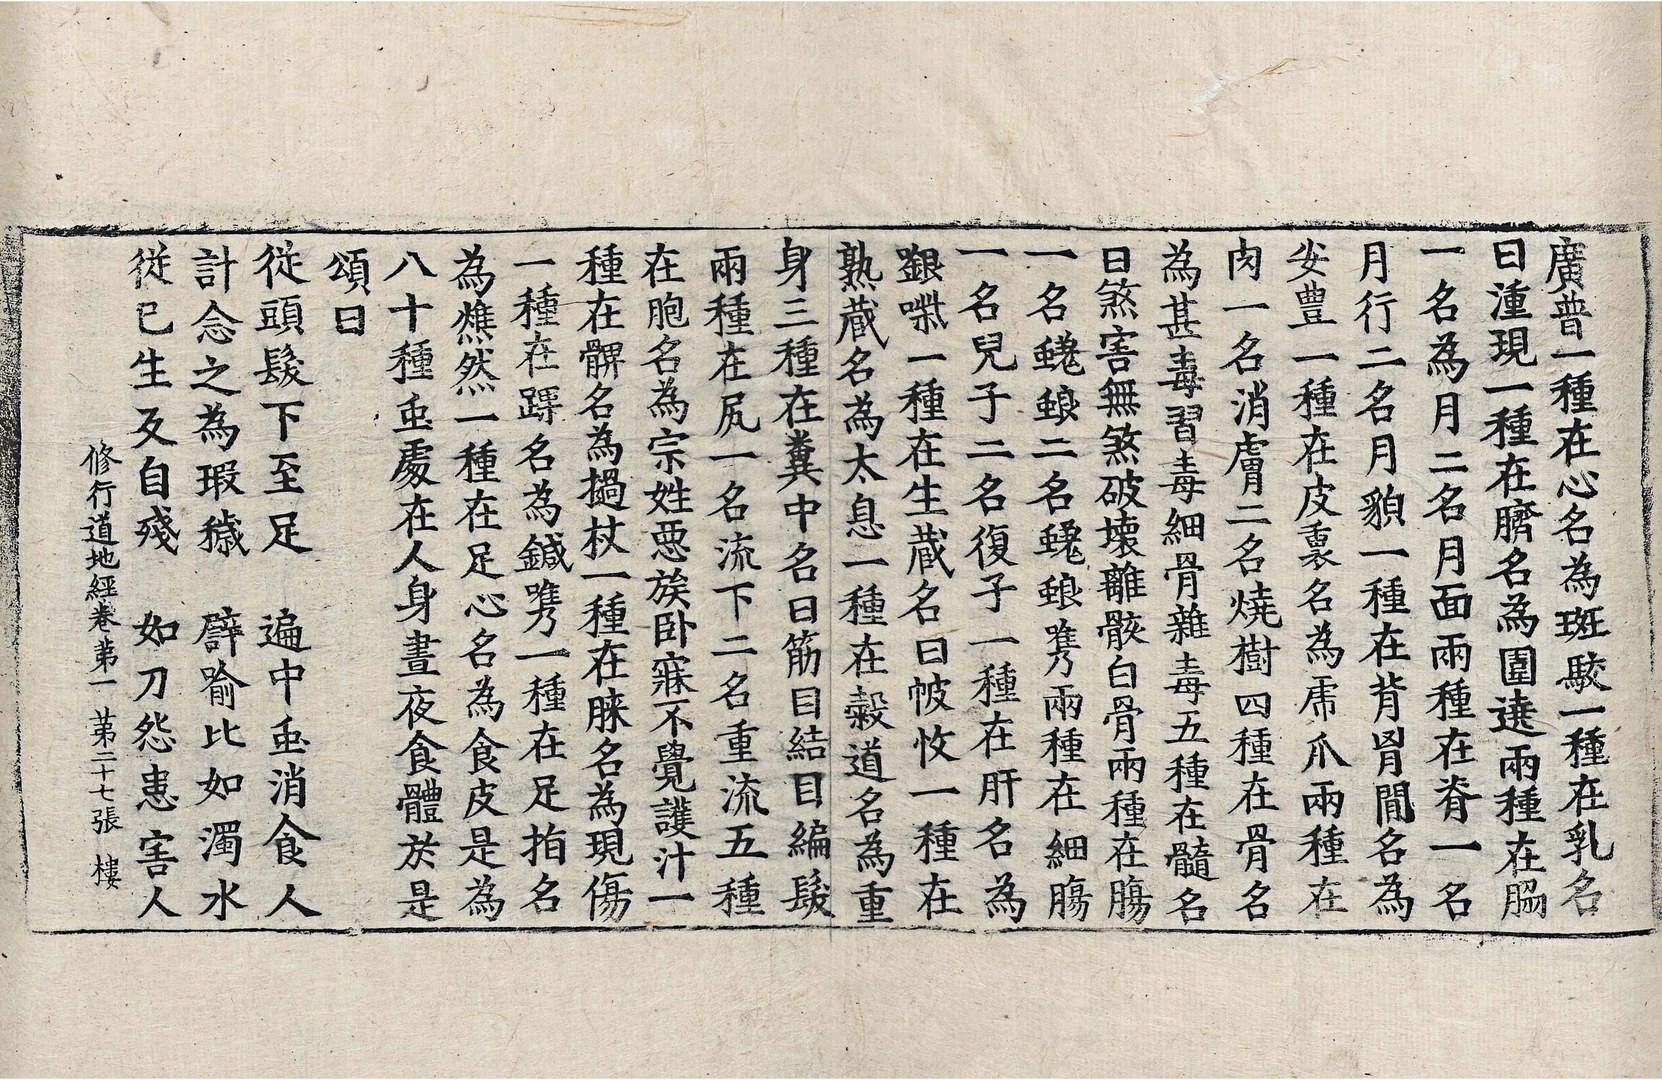 廣普一種在心名為斑駮一種在乳名
曰湩現一種在臍名為圍遶兩種在脇
一名為月二名月面兩種在脊一名
月行二名月貌一種在背胷間名為
安豊一種在皮裏名為虎爪兩種在
肉一名消膚二名燒樹四種在骨名
為甚毒習毒細骨雜毒五種在髓名
曰煞害無煞破壞離骸白骨兩種在膓
一名蜣蜋二名蜣蜋㭰兩種在細膓
一名兒子二名復子一種在肝名為
銀喍一種在生蔵名曰帔忟一種在
熟蔵名為太息一種在穀道名為重
身三種在糞中名曰筋目結目編髮
兩種在尻一名流下二名重流五種
在胞名為宗姓惡族卧寐不覺護汁一
種在髀名為撾杖一種在膝名為現傷
一種在踝名為鍼㭰一種在足指名
為燋然一種在足心名為食皮是為
八十種䖝處在人身晝夜食體於是
頌曰
從頭髮下至足　遍中䖝消食人
計念之為瑕穢　譬喻比如濁水
從已生反自殘　如刀怨恚害人
修行道地經卷第一　第二十七張　樓